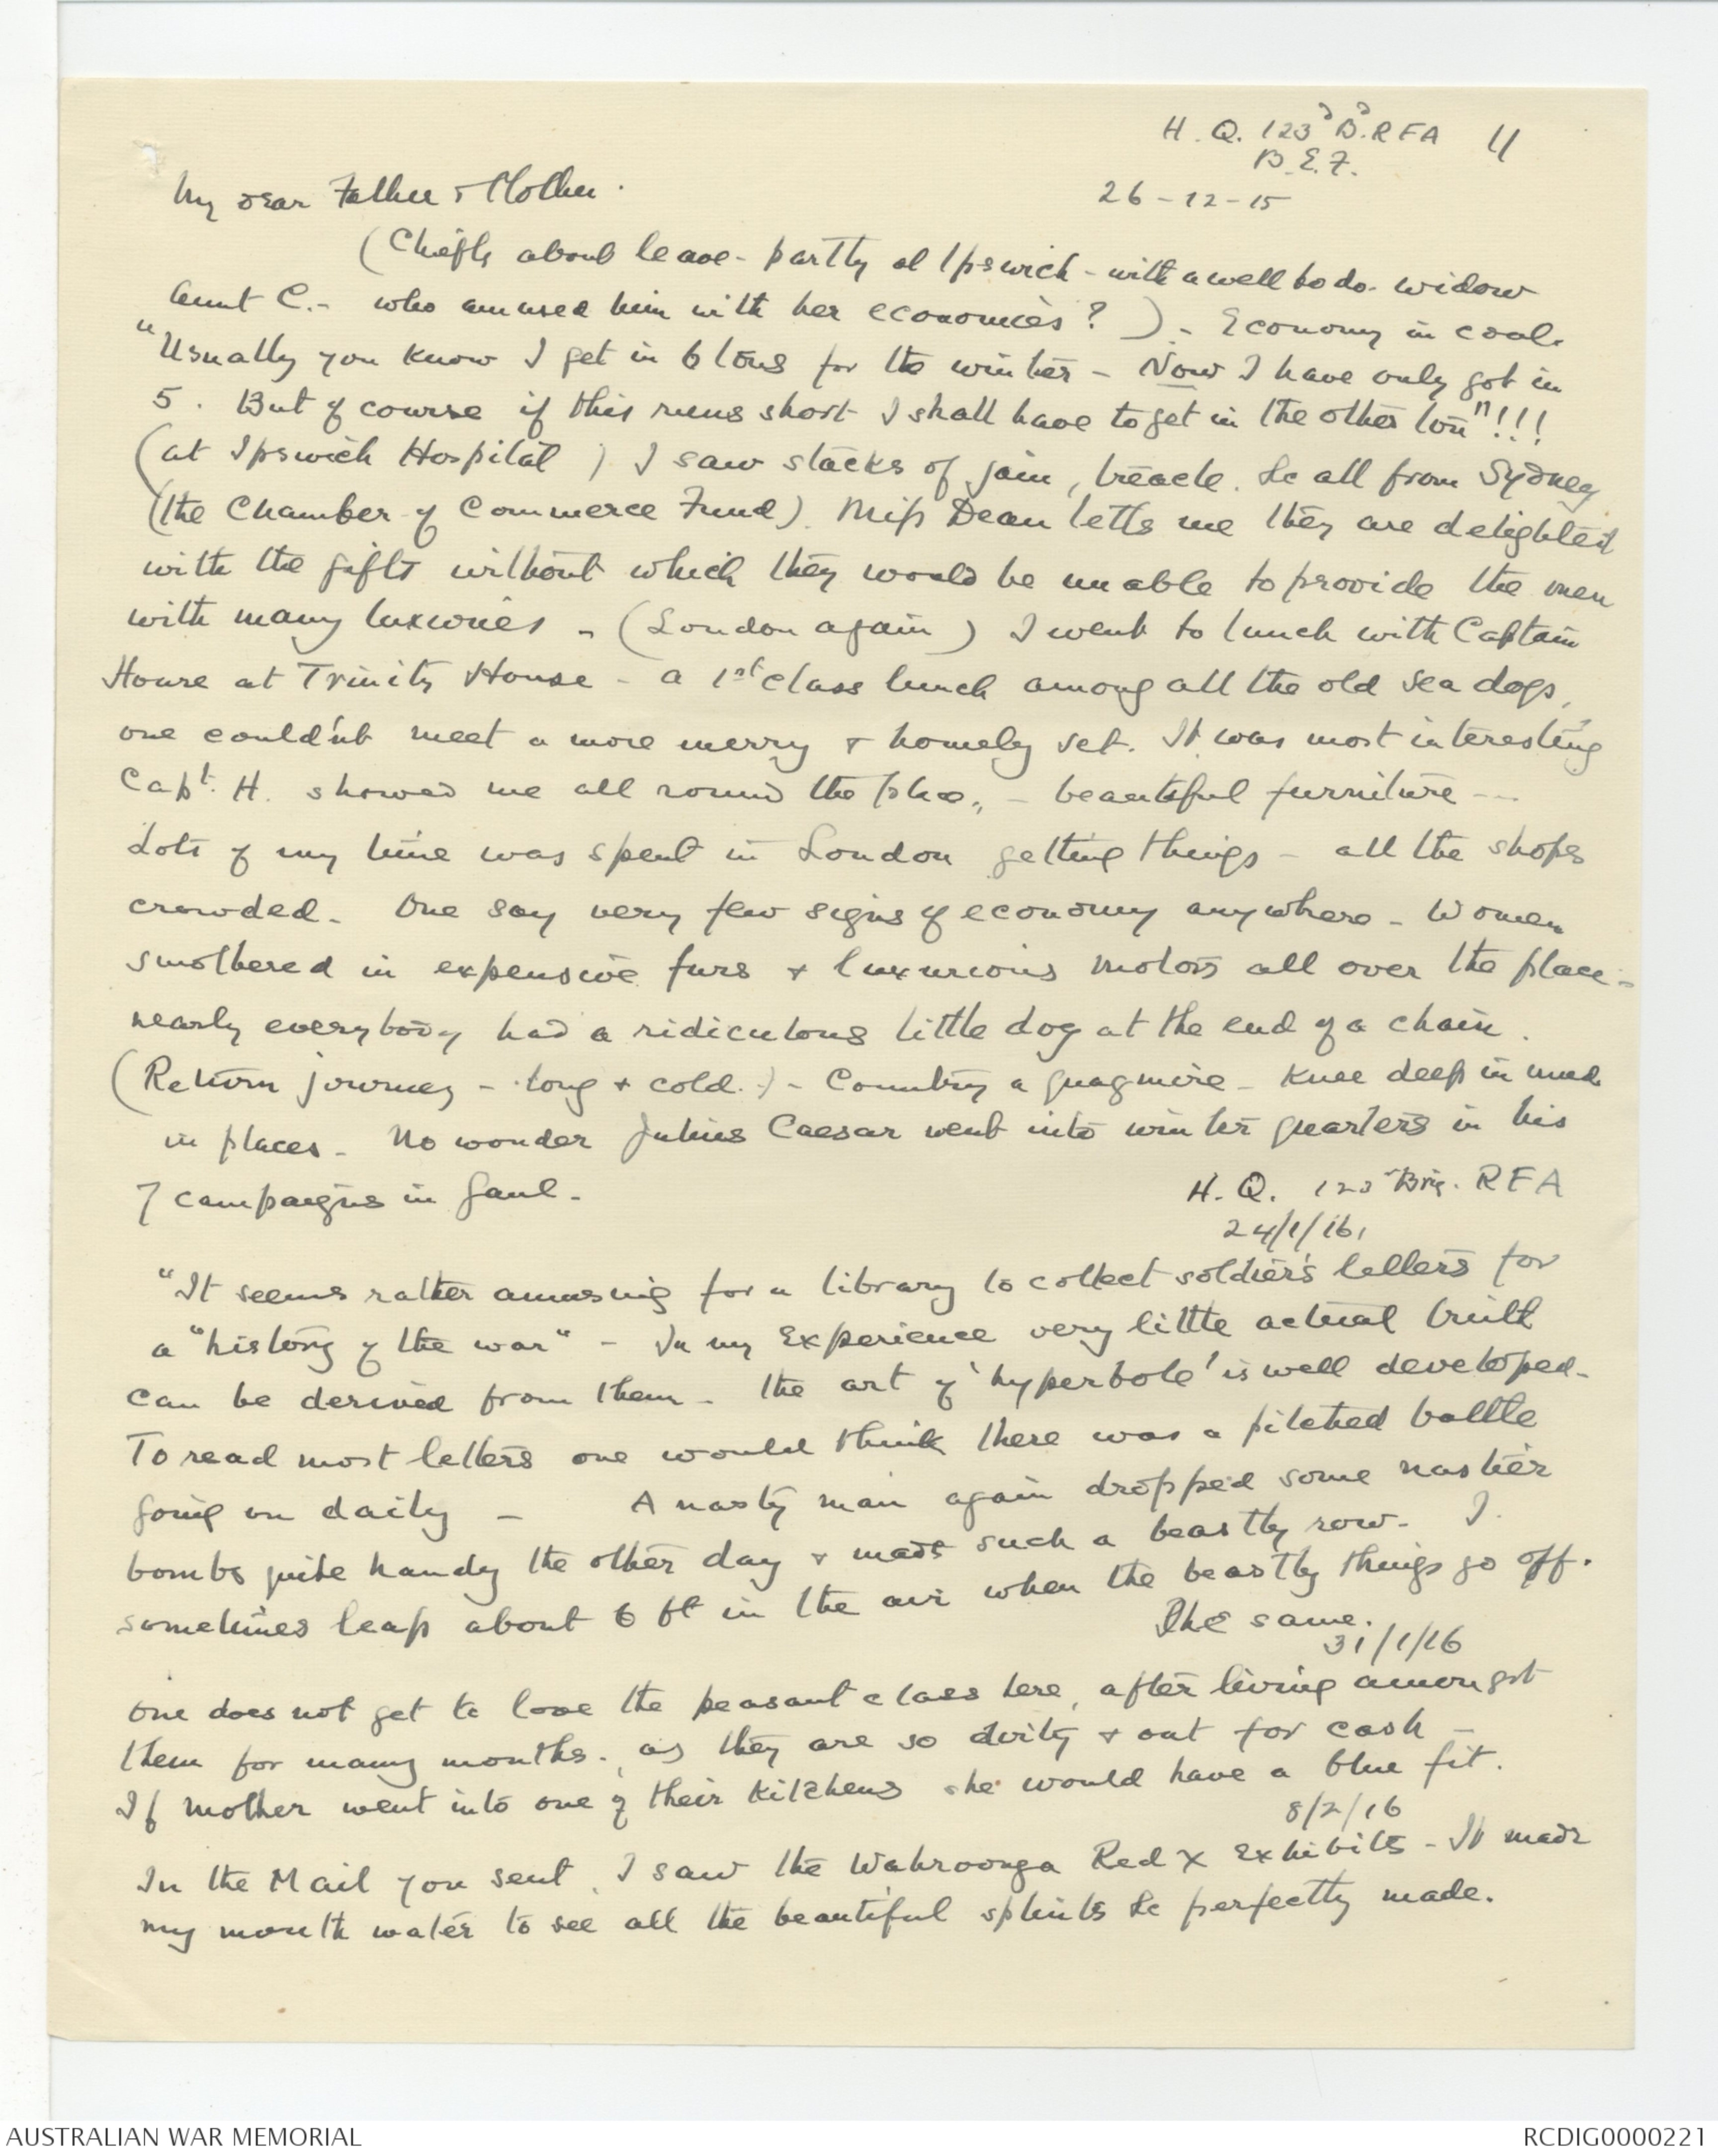 H. Q. 123rd B.RFA 11
B.E.F.
26-12-15
My dear Father & Mother.
(Chiefly about leave - partly at Ipswich - with a well to do widow
Aunt C. - who amused him with her economies? ) - Economy in coal.
"Usually you know I get in 6 tons for the winter - Now I have only got in
5. But of course if this runs short I shall have to get in the other ton"!!!
(at Ipswich Hospital) I saw stacks of jam, treacle. &c all from Sydney
(the Chamber of Commerce Fund). Miss Dean tells me they are delighted
with the gifts without which they would be unable to provide the men
with many luxuries - (London again) I went to lunch with Captain
Howre at Trinity House - a 1st class lunch among all the old sea dogs,
one couldn't meet a more merry & homely set. It was most interesting
Capt. H. showed me all round the place, - beautiful furniture --
Lots of my time was spent in London getting things - all the shops
crowded - One say very few signs of economy anywhere - Women
smothered in expensive furs & luxurious motors all over the place -
nearly everybody had a ridiculous little dog at the end of a chain.
(Return journey - long & cold.) - Country a quagmire - Knee deep in mud
in places - No wonder Julius Caesar went into winter quarters in his
7 campaigns in Gaul -
H. Q. 123rd Brig. RFA
24/1/16,
"It seems rather amusing for a library to collect soldier's letters for
a "history of the war" - In my Experience very little actual truth
can be derived from them - the art of 'hyperbole' is well developed -
To read most letters one would think there was a pitched battle
going on daily - A nasty man again dropped some nastier
bombs quite handy the other day & made such a beastly row - I.
sometimes leap about 6 ft in the air when the beastly things go off.
The same.
31/1/16
One does not get to love the peasant class here, after living amongst
them for many months, as they are so dirty & out for cash -
If Mother went into one of their kitchens she would have a blue fit.
8/2/16
In the Mail you sent, I saw the Wahroonga Red X Exhibits - It made
my mouth water to see all the beautiful splints &c perfectly made.
AUSTRALIAN WAR MEMORIAL
RCDIG0000221